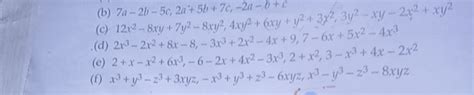 (b) 7a – 2b – 5c, 2a + 5b + 7c, –2a – b + c
(c) 12x² – 8xy + 7y² – 8xy², 4xy² + 6xy + y² + 3x², 3y² – xy – 2x² + xy²
(d) 2x³ – 2x² + 8x – 8, – 3x³ + 2x² – 4x + 9, 7 – 6x + 5x² – 4x³
(e) 2 + x – x² + 6x³, – 6 – 2x + 4x² – 3x³, 2 + x², 3 – x³ + 4x – 2x²
(f) x³ + y³ – z³ + 3xyz, – x³ + y³ + z³ – 6xyz, x³ – y³ – z³ – 8xyz